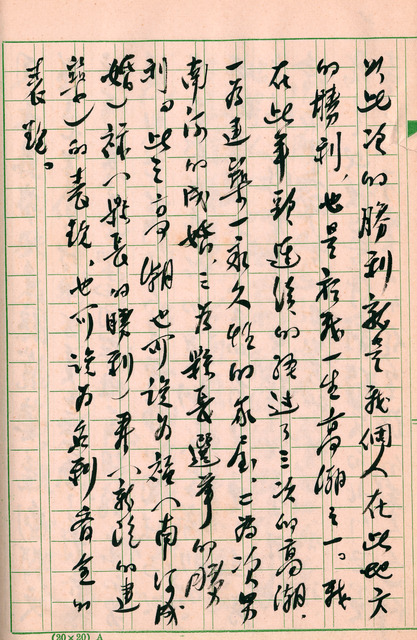 以此次的勝利就是我個人在此地方
的勝利，也是我一生高潮之一。我
在此年頭連續的經過了三次的高潮。
一為建築一永久性的家屋，二為次男
南河的成婚，三為縣長選舉的勝
利。此三高潮也可說為福（南河成
婚）祿（縣長的勝利）壽（新院的建
築）的表現，也可說為 全的
表現。
(20×20) A